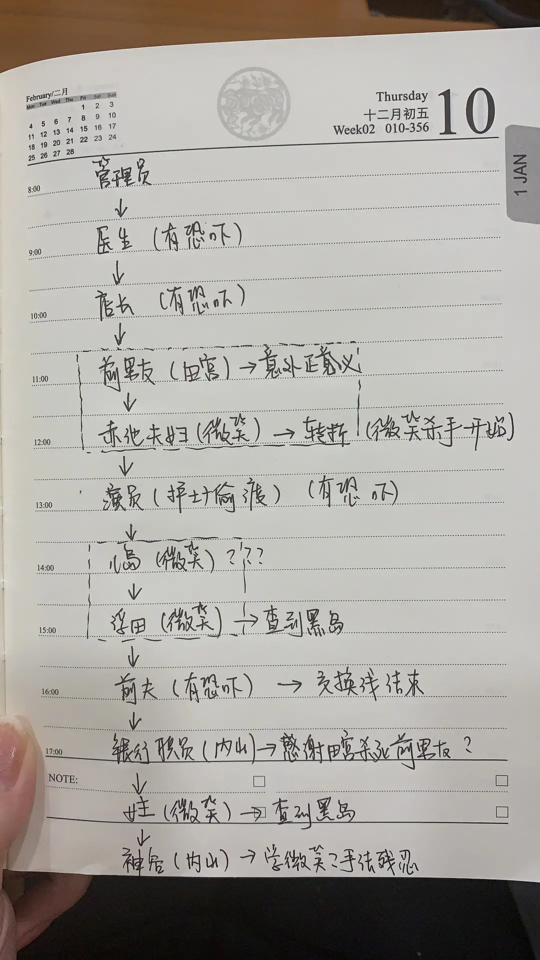 February/二月
Mon Tue Wed Thu Fri Sat Sun
1 2 3
4 5 6 7 8 9 10
11 12 13 14 15 16 17
18 19 20 21 22 23 24
25 26 27 28
Thursday
十二月初五
Week02 010-356
10
1 JAN
8:00 管理员
↓
9:00 医生（有恐吓）
↓
10:00 店长（有恐吓）
↓
11:00 前男友（田宫）→意外正意义
↓
12:00 赤池夫妇（微笑）→ 转折（微笑杀手开始）
↓
13:00 演员（护士偷渡）（有恐吓）
↓
14:00 儿岛（微笑）？？？
↓
15:00 浮田（微笑）→查到黑岛
↓
16:00 前夫（有恐吓）→ 交换线结束
↓
17:00 银行职员（内山）→感谢田宫杀死前男友？
NOTE:
↓
女主（微笑）→查到黑岛
↓
神居（内山）→学微笑？手法残忍